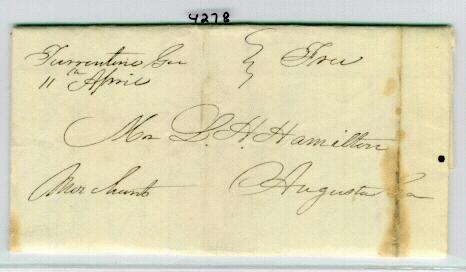 4278
Turrentine Geo
11th April
Free
Mr L. H. Hamilton
Merchant
Augusta Ga